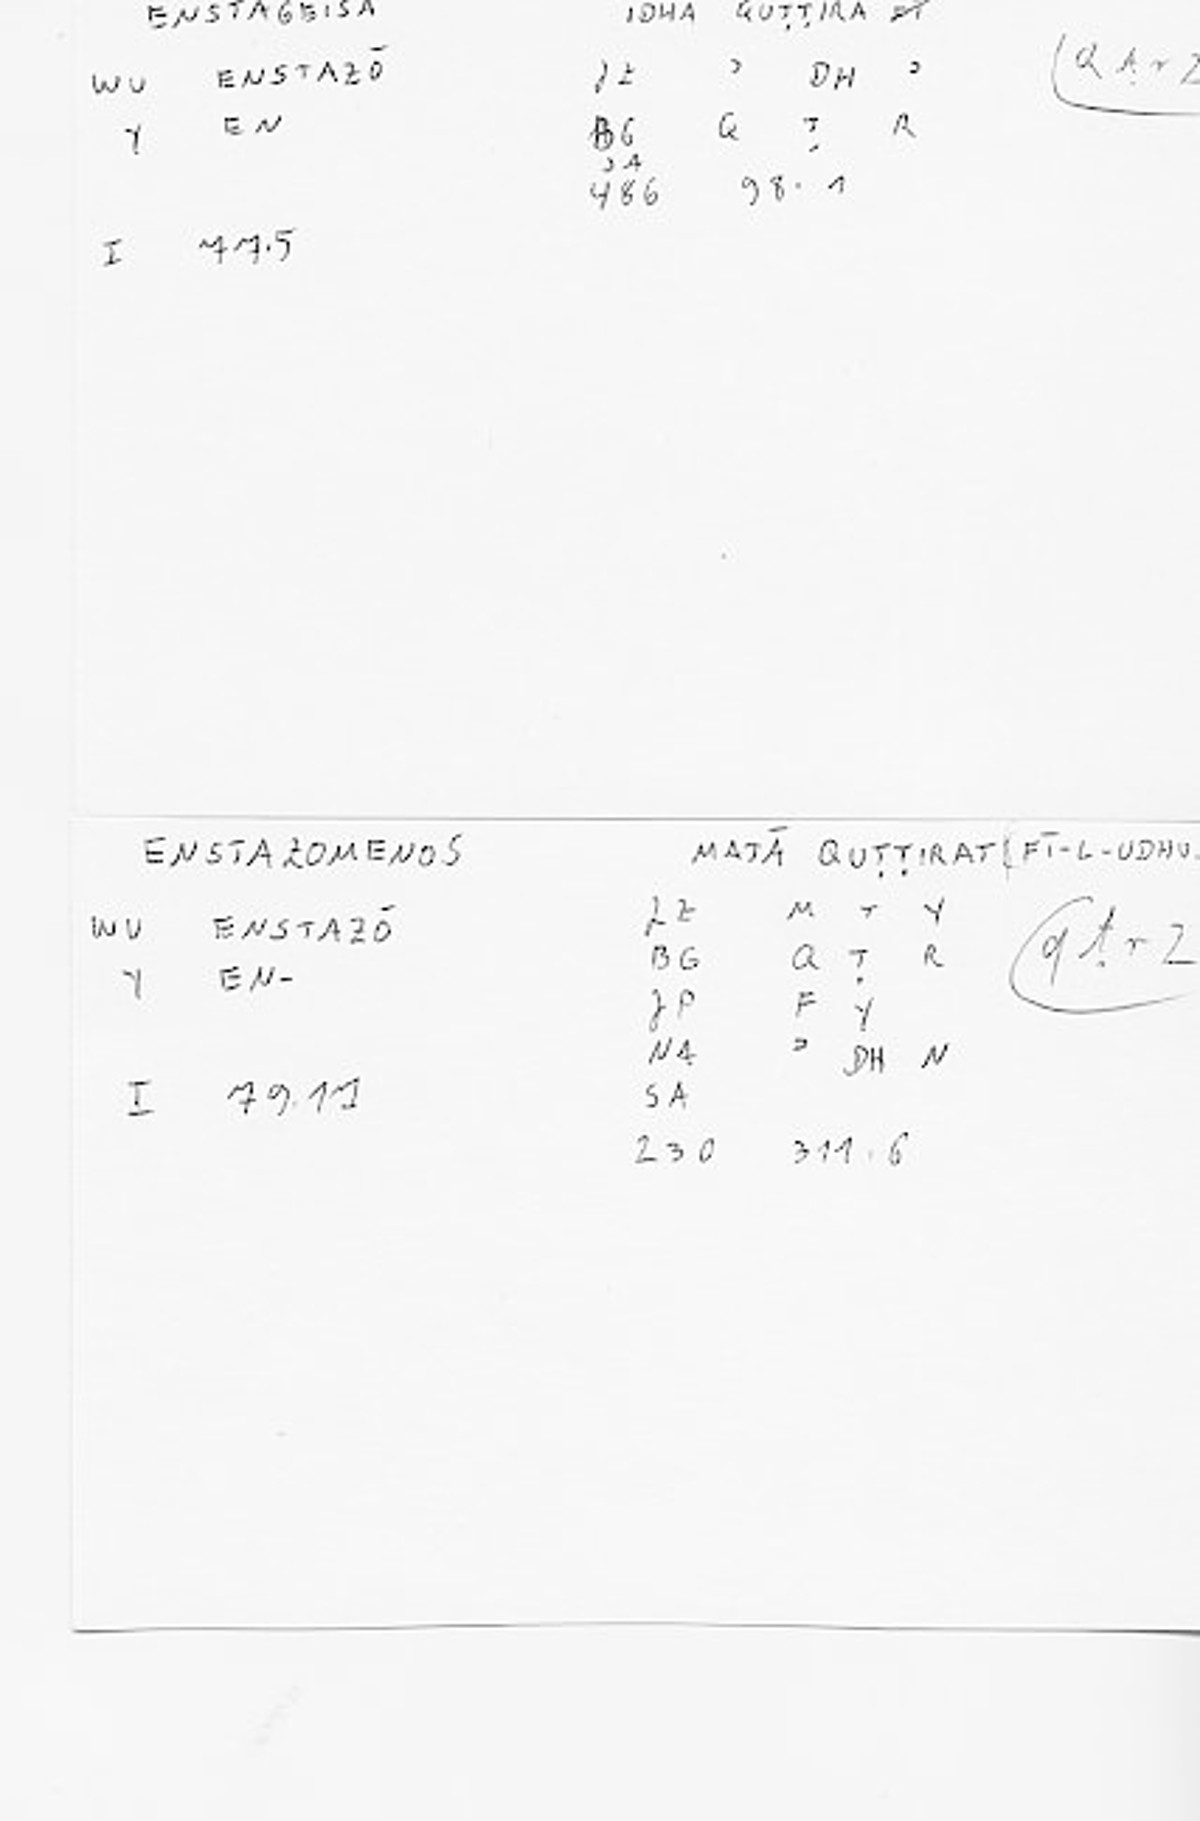 ENSTAGEISA IDHA QUṬṬIRA
WU ENSTAZŌ JZ ɔ DH ɔ
Y EN BG Q Ṭ R
SA
486 98.1
I 77.5
ENSTAZOMENOS MATĀ QUṬṬIRAT (FĪ-L-UDHU
WU ENSTAZŌ JZ M T Y
Y EN- BG Q Ṭ R qṭr2
JP F Y
NA ɔ DH N
I 79.11 SA
230 311.6